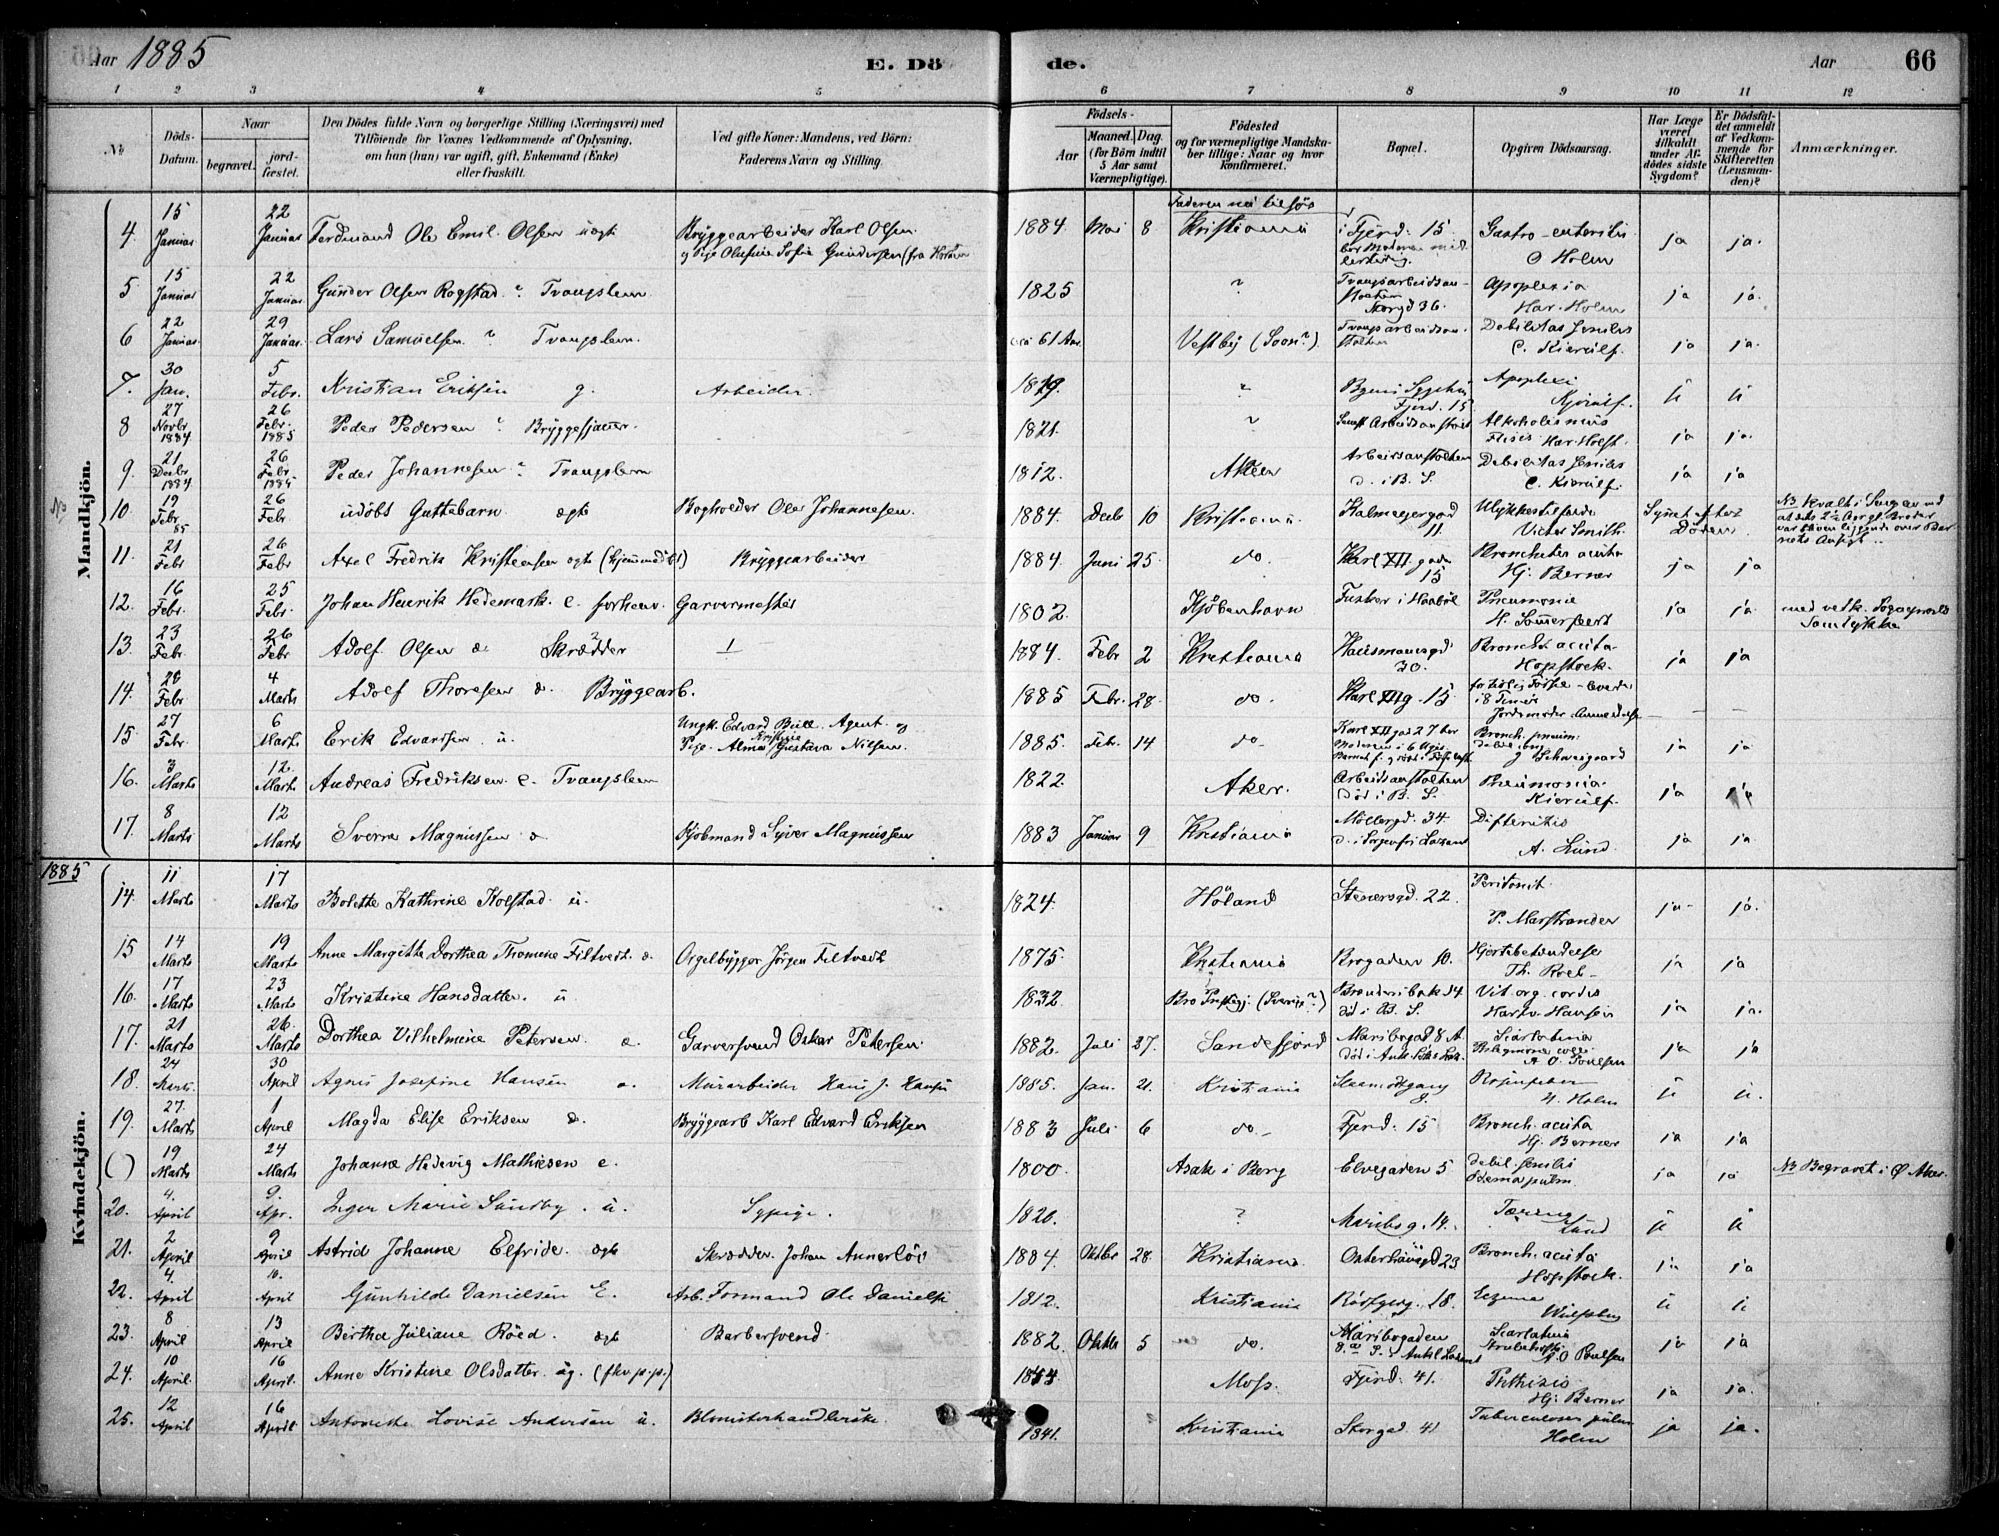 Aar 1885 E. Dö de. Aar 66
1 2 3 4 5 6 7 8 9 10 11 12
No
Döds-Datum.
Naar
begravet.
jordfæstet.
Den Dödes fulde Navn og borgerlige Stilling (Næringsvei) med
Tilföiende for Voxnes Vedkommende af Oplysning,
om hun (han) var ugift, gift, Enkemand (Enke)
eller fraskilt.
Ved gifte Koner: Mandens, ved Börn:
Faderens Navn og Stilling.
Födsels-
Aar
Maaned. Dag.
(for Börn indtil
5 Aar samt
Værnepligtige).
Födested
og for værnepligtige Mandska-
ber tillige: Naar og hvor
konfirmeret.
Bopæl.
Opgiven Dödsaarsag.
Har Læge
været
tilkaldt
under Af-
dödes sidste
Sygdom?
Er Dödsfal-
det anmeldt
af Vedkom-
mende for
Skifteretten
(Lensman-
den)?
Anmærkninger.
Mandkjön.
4 15 Januar 22 Januar Ferdinand Ole Emil Olsen uægte Bryggearbeider Karl Olsen 1884 Mai 8 Kristiania Fjerd. 15 Gastro-enteritis ja ja
og Pige Olufine Sofie Gundersen (fra Horten) O Holm
5 15 Januar 22 Januar Gunder Olsen Rogstad ? Tvangslem 1825 ? Tvangsarbeidsanstalten Storgd 36. Apoplexia Har. Holm ja ja
6 22 Januar 29 Januar Lars Samuelsen ? Tvangslem ca 61 Aar Vestby (Soon?) Tvangsarbeidsanstalten Debilitas senilis C. Kierulf. ja ja
7. 30 Jan. 5 Febr. Kristian Eriksen g. Arbeider. 1819. ? Byens Sygehus Fjerd. 15 Apoplexi Kjerulf. ü ü
8 27 Novbr 1884 26 Febr. 1885 Peder Pedersen ? Bryggesjauer 1821. ? Arbeidsanstalt Alkoholismus Har. Holst. ja ja
9. 21 Decbr 1884 26 Febr 1885 Peder Johannesen ? Tvangslem 1812. Aker Arbeidsanstalten d. i B. S. Debilitas senilis C. Kierulf. ja ja
10. 19 Febr 85 26 Febr udöbt Guttebarn ægte Bogholder Ole Johannesen. 1884. Decbr 10 Kristiania Kalmeyergad 11. Ulykkestilfælde Victor Smith. Synet efter Döden NB kvalt i Sengen ved
at dets 2½ Aar gl. Broder
var bleven liggende over Bar-
nets Ansigt
11. 21 Febr 26 Febr Axel Fredrik Kristensen ægte (hjemmedöbt) Bryggearbeider 1884. Juni 25. do. Karl XII gade 15 Bronchitis acuta Hj. Berner ja ja
12. 16 Febr. 25 Febr. Johan Henrik Hedemark. e. forhenv. Garvermester 1802. Kjöbenhavn Pneumonie ja ja med vedk. Sogneprests Samtykke
13. 23 Febr 26 Febr Adolf Olsen æ Skrædder 1884. Febr 2 Kristiania Hausmannsgd 30. Bronch acuta Hopstock. ja ja
14. 28 Febr 4 Marts Adolf Thoresen æ. Bryggearb. 1885 Febr. 28 do. Karl XII g. 15 for tidlig Födsel - levede i 8 Timer
15 27 Febr. 6 Marts Erik Edvardsen. u. Ungk. Edvard Bull. Agent. og
Pige. Alma Kristine Gustava Nilsen. 1885. Feb. 14 do Karl XII gad 27 Bronch. pneum. Schweigaard ja ja
16. 3 Marts 12. Marts Andreas Fredriksen e. Tvangslem 1822. Aker. Arbeidsanstalten Död i B. S. Pneumonia Kierulf. ja ja
17. 8 Marts 12 Marts Sverre Magnussen æ Kjöbmand Syver Magnussen 1883 Januar 9 Kristiania Möllergd. 34. Difteritis A. Lund. ja ja
1885
Kvindekjön.
14. 11 Marts 17 Marts Bolette Kathrine Kolstad u. 1824. Höland Stenersgd 22. Peritonit. P. Marstrander ja ja
15 14 Marts 19 Marts Anne Margitte Dorthea Thomine Filtvedt æ. Orgelbygger Jörgen Filtvedt 1875. Kristiania Brogaden 10. Hjertebetændelse ja ja
16. 17 Marts 23 Marts Kristine Hansdatter. u 1832. Bro Prestegj. (Sverige?) död i B. S. Vit. org. cordis Hartv. Hansen ja ja
17. 21 Marts 26. Marts Dorthea Vilhelmine Petersen æ. Garversvend Oskar Petersen 1882. Juli 27. Sandefjord Maribogad 8 A Scarlatina A O Poulsen ja ja
18. 24 Marts 30 April Agnes Josefine Hansen æ. Murarbeider Hans J. Hansen 1885. Jan. 21. Kristiania 8. H. Holm ü ü.
19. 27. Marts 1 April Magda Elise Eriksen æ. Bryggearb Karl Edvard Eriksen 1883 Juli 6 do Fjerd. 15 Bronch. acuta Hj. Berner ja ja
( ) 19 Marts 24 Marts Johanne Hedevig Mathiesen e. 1800. Asak i Berg Elvegaden 5 debil. senilis ja ja NB Begravet i Ø Aker.
20. 4. April 9. Apr. Inger Marie Sundby. u. Sypige. 1820. ? Maribog. 14. Tæring Lund ü ü
21. 2 April 9 April Astrid Johanne Elfride. ægte Skrædder. Johan Annerlöv 1884. Oktbr 28 Kristiania. Osterhausgd 23 Bronch. acuta Hopstock. ja ja
22. 4. April 10. April Gunhilde Danielsen E. Arb. Formand Ole Danielsen 1812. Kristiania 18. ü ü
23. 8 April 13 April Birthe Juliane Röed. ægte Barbersvend. 1882 Oktbr 5 do. Maribogaden Scarlatina A. O Poulsen ja ja
24. 10 April 16 April. Anne Kristine Olsdatter. ug. (fhv. p. p.) 1854 Moss. Fjerd. 41. Phthisis Hj. Berner ja ja.
25. 12 April 16 April Antonette Lovise Andersen u. Blomsterhandlerske. 1841. Kristiania Storgad 41 Tuberculosis pulm Holm ja ja.